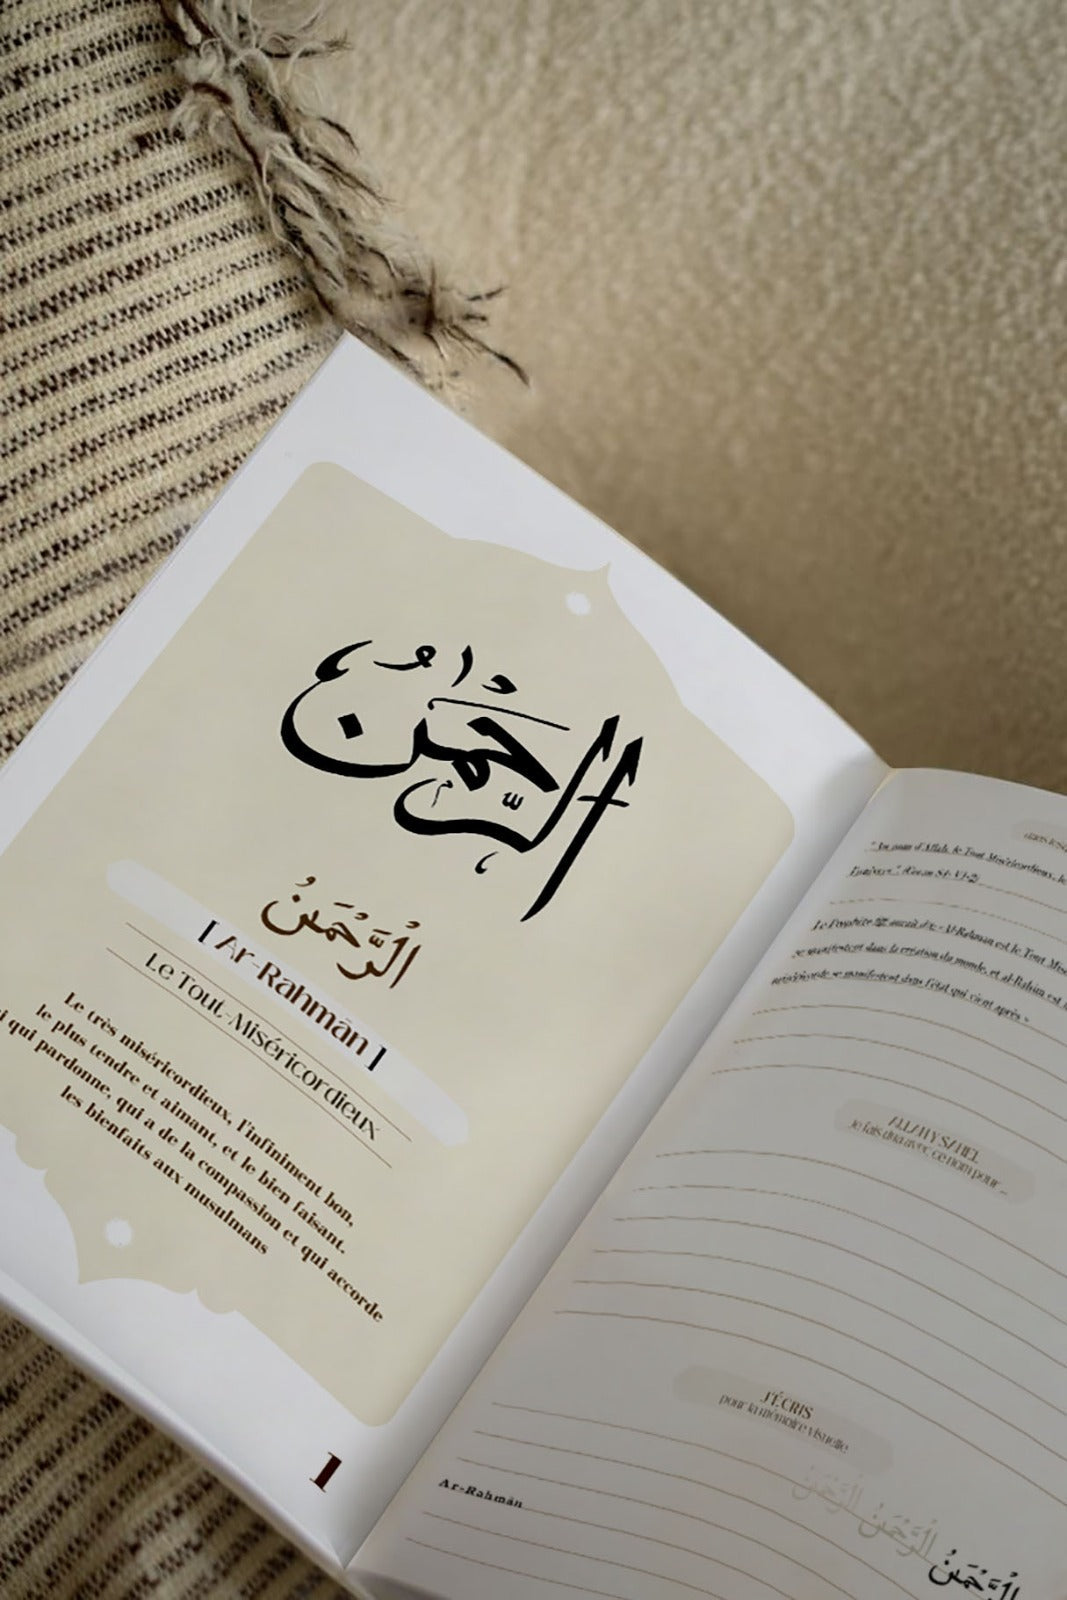 الرَّحْمٰنُ
الرَّحْمَنُ
[ Ar-Rahmān ]
Le Tout-Miséricordieux
Le très miséricordieux, l'infiniment bon,
le plus tendre et aimant, et le bien faisant.
qui pardonne, qui a de la compassion et qui accorde
les bienfaits aux musulmans
1
d'Allah, le Tout Miséricordieux, le
Le Prophète ﷺ aurait dit : « Al-Rahman est le Tout
se manifestent dans la création du monde, et al-Rahim est
se manifestent dans l'état qui vient après »
Je fais dua avec ce nom pour...
J'ÉCRIS
pour la mémoire visuelle
Ar-Rahmān
الرَّحْمَنُ الرَّحْمَنُ الرَّحْمَنُ